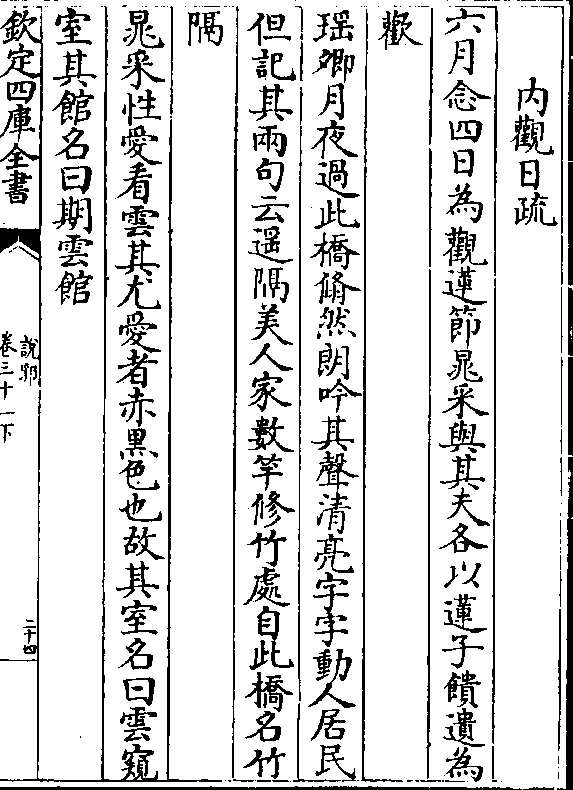 内觀日疏
六月念四日為觀蓮節晁采與其夫各以蓮子饋遺為
歡
瑶卿月夜過此橋翛然朗吟其聲清亮字字動人居民
但記其兩句云遥隔美人家數竿修竹處自此橋名竹
隔
晁采性愛看雲其尤愛者赤黑色也故其室名曰雲窺
室其館名曰期雲館
欽定四庫全書
說郛
卷三十一下
二十四